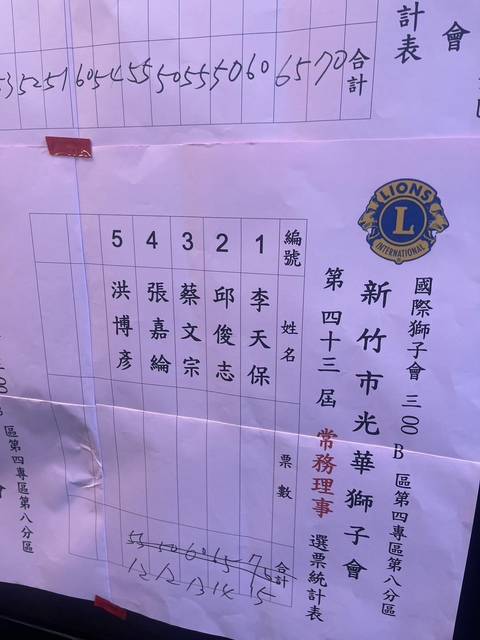 計表
會
合計
70
65
60
50
55
50
55
54
60
51
52
53
LIONS
L
INTERNATIONAL
國際獅子會 三00 B 區第四專區第八分區
新竹市光華獅子會
第四十三屆 常務理事 選票統計表
編號 姓名 票數 合計
1 李天保 75 15
2 邱俊志 65 14
3 蔡文宗 60 13
4 張嘉綸 50 12
5 洪博彥 55 12
三00 B 區第四專區第八分區
會